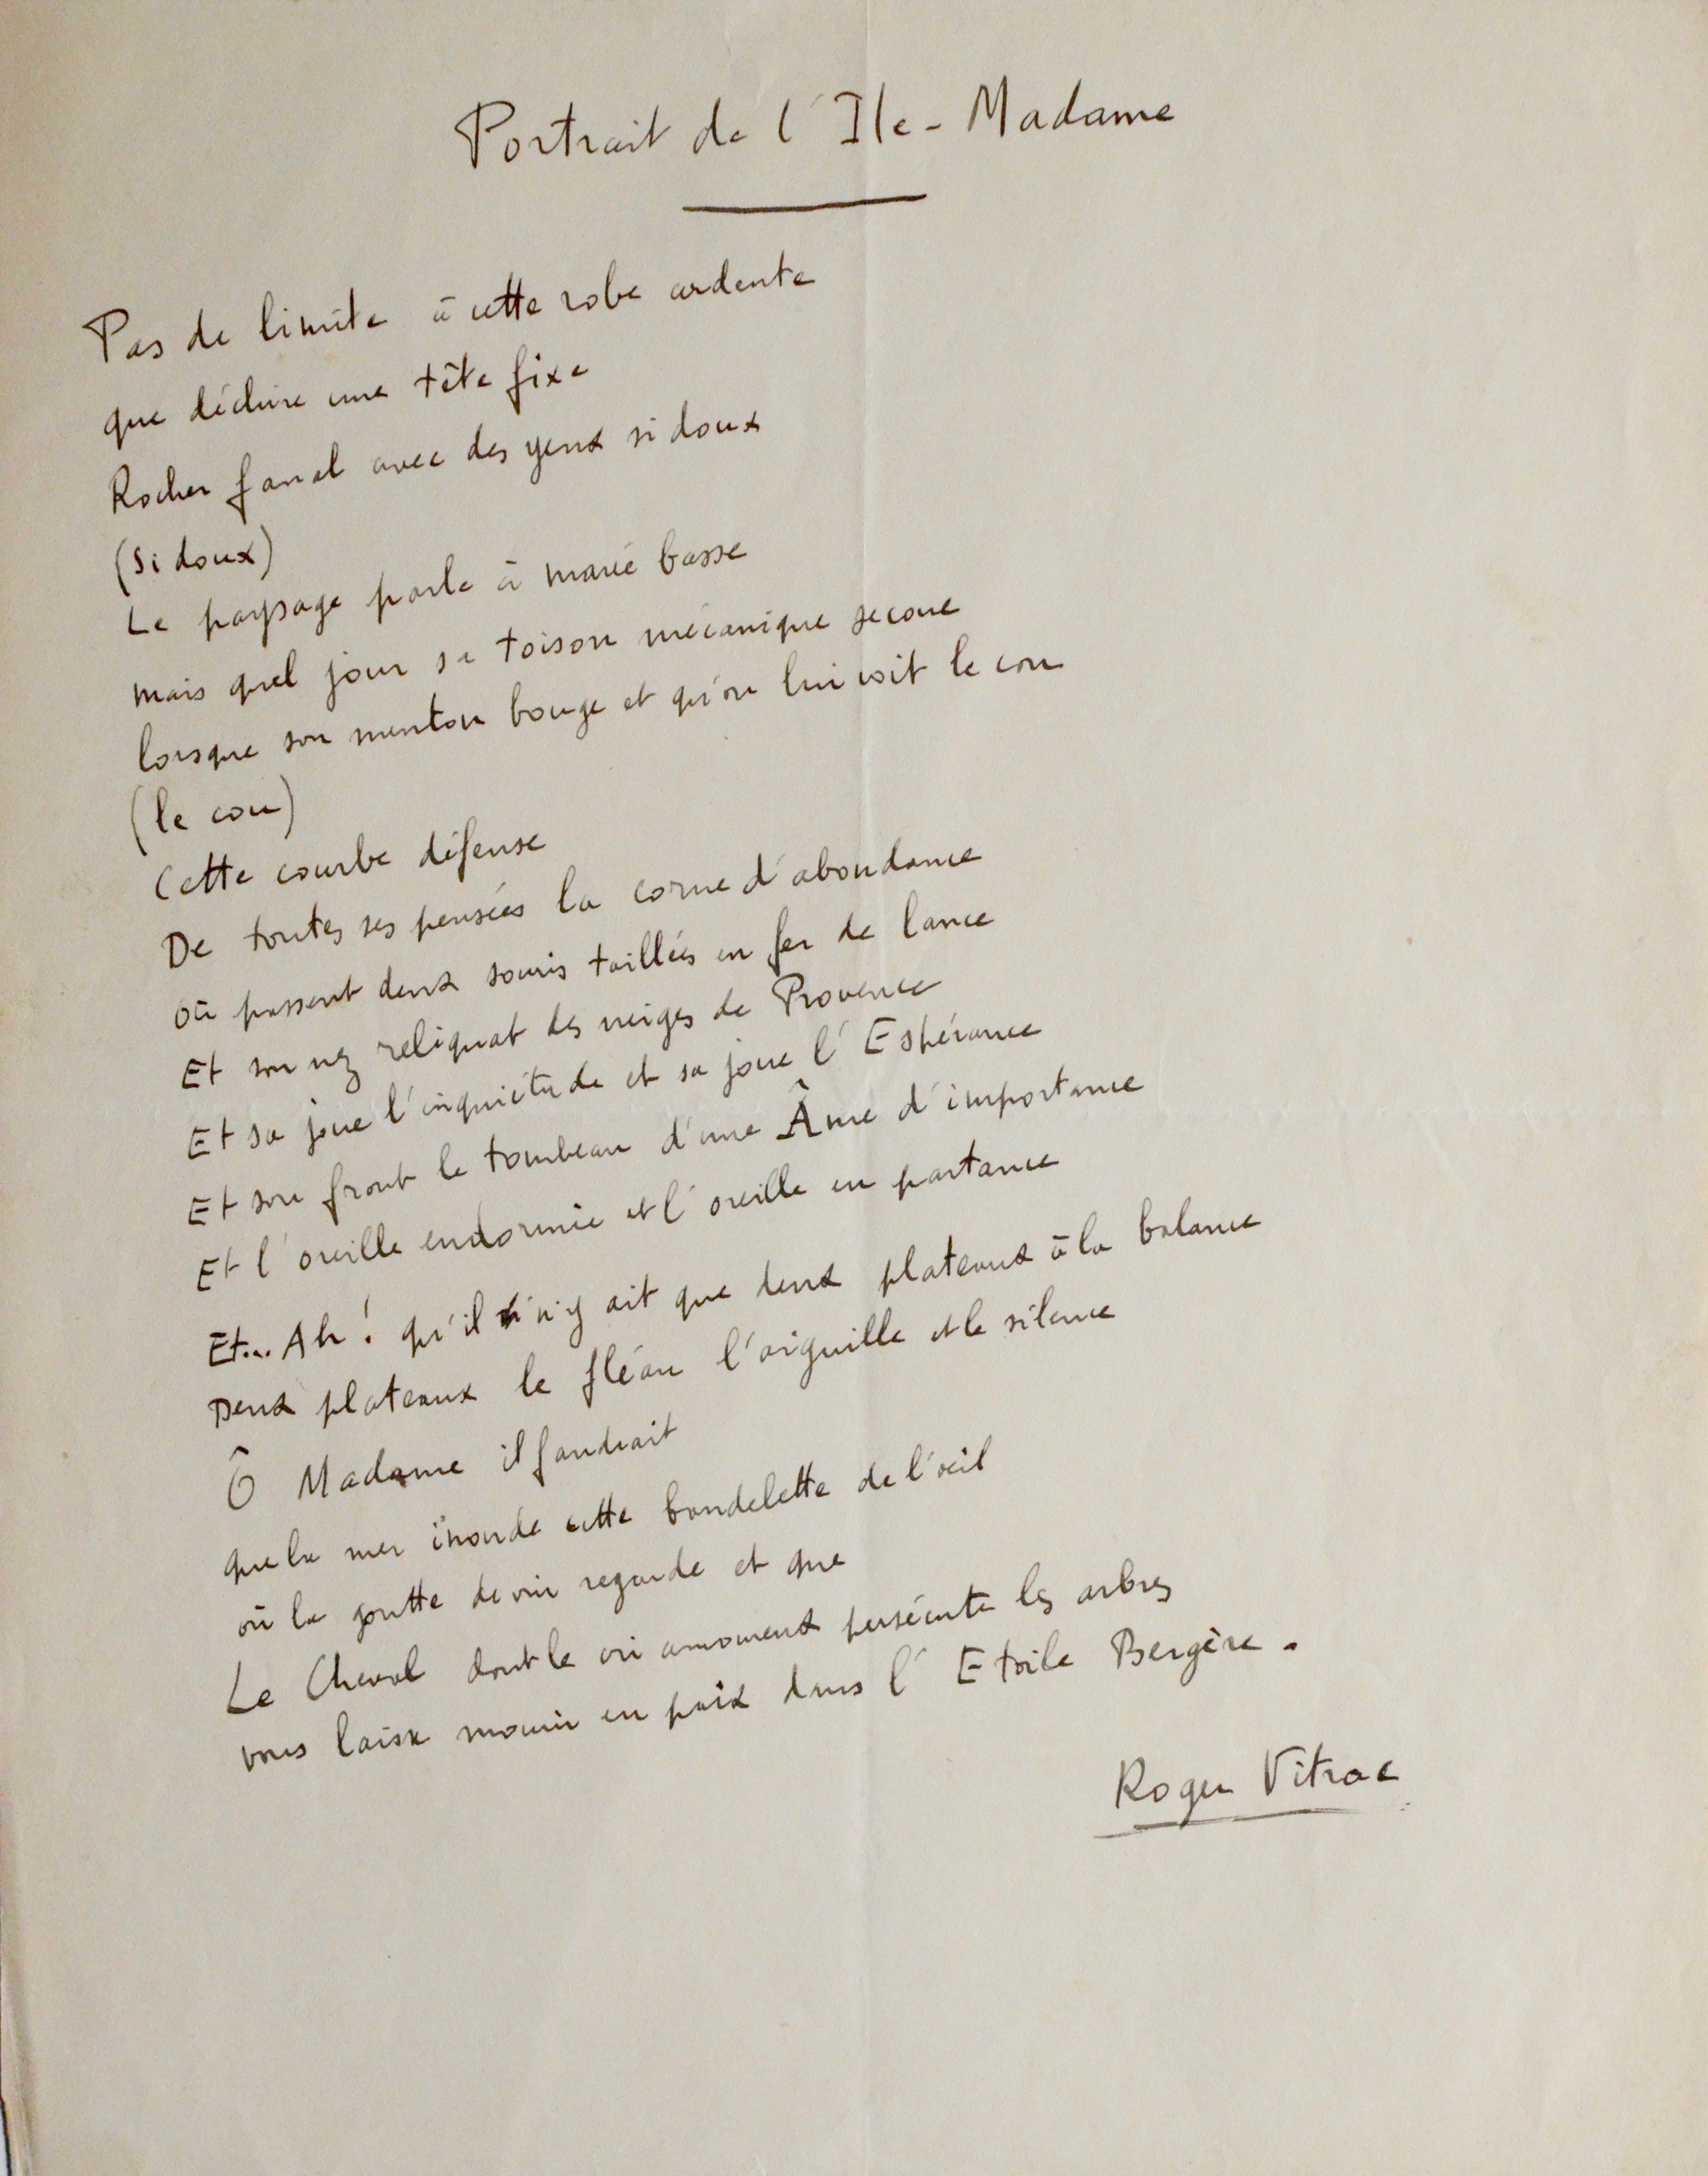 Portrait de l'Ile-Madame
Pas de limite à cette robe ardente
que déchire une tête fixe
Rocher fanal avec des yeux si doux
(si doux)
Le paysage parle à marée basse
mais quel jour sa toison mécanique secoue
lorsque son menton bouge et qu'on lui voit le cou
(le cou)
Cette courbe défense
De toutes ses pensées la corne d'abondance
où passent deux souris taillées en fer de lance
Et son nez reliquat des neiges de Provence
Et sa joue l'inquiétude et sa joue l'Espérance
Et son front le tombeau d'une Âme d'importance
Et l'oreille endormie et l'oreille en partance
Et... Ah ! qu'il n'y ait que deux plateaux à la balance
Deux plateaux le fléau l'aiguille et le silence
Ô Madame il faudrait
que la mer inonde cette bandelette de l'œil
où la goutte de vin regarde et que
Le Cheval dont le cri amoureux persécute les arbres
vous laisse mourir en paix dans l'Etoile Bergère.
Roger Vitrac